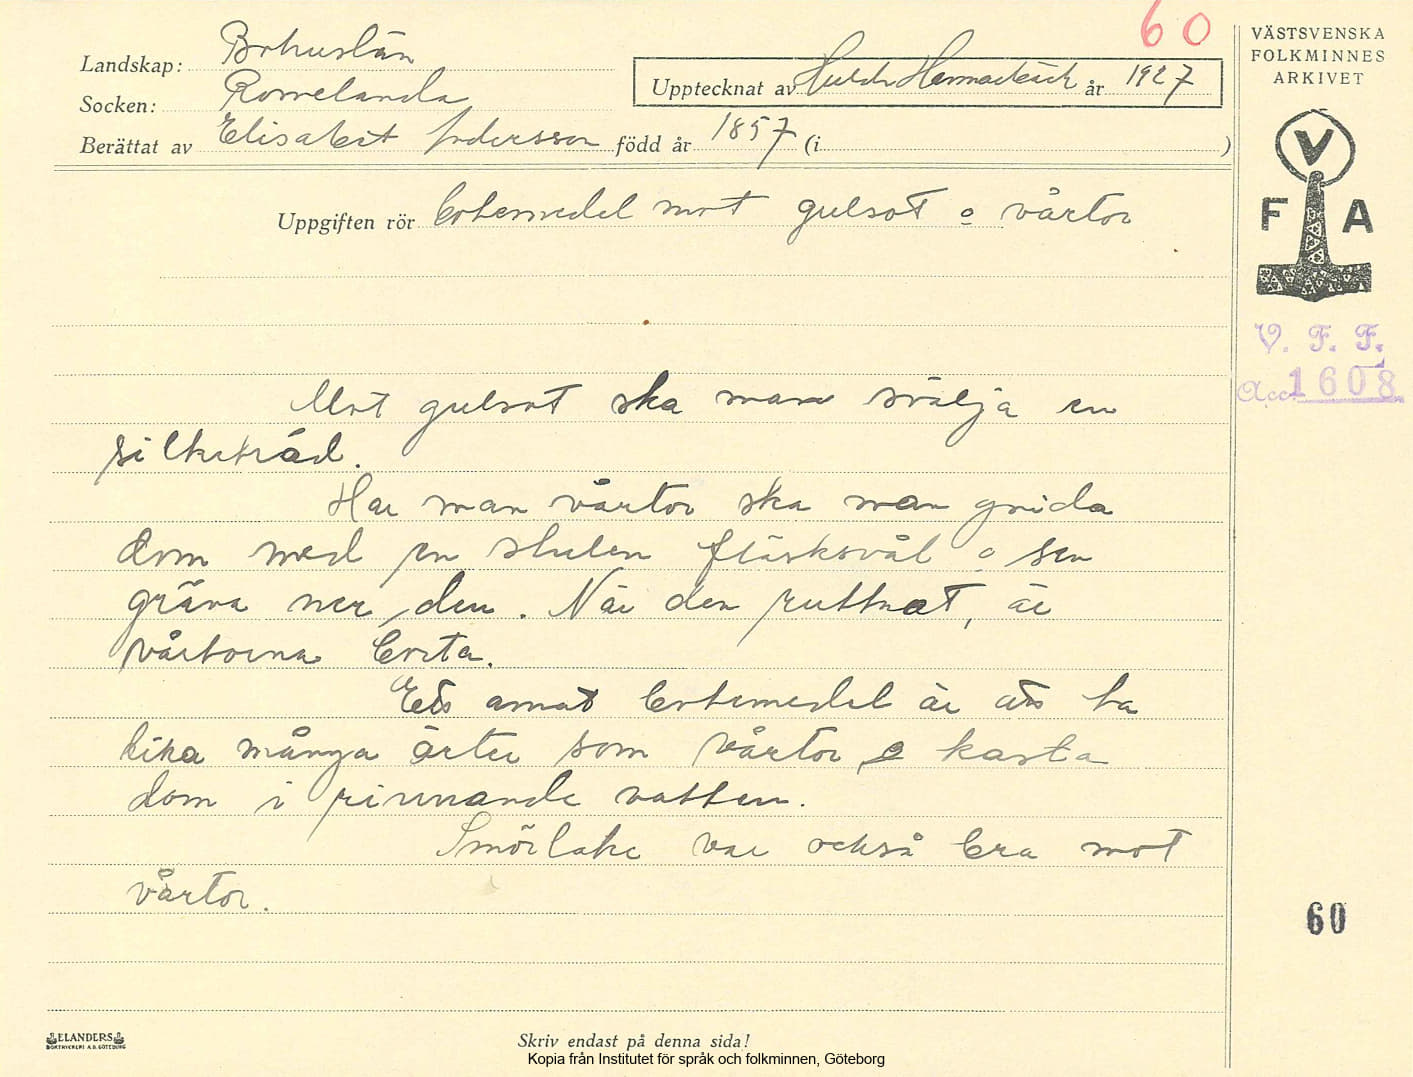 60
VÄSTSVENSKA
FOLKMINNES
ARKIVET
Landskap: Bohuslän
Upptecknat av Hulda Hammarbäck år 1927
Socken: Romelanda
Berättat av Elisabet Andersson född år 1857 (i )
V
F A
Uppgiften rör botemedel mot gulsot o vårtor
V. F. F.
Acc. 1608
Mot gulsot ska man svälja en
silketråd.
Har man vårtor ska man gnida
dom med en stulen fläsksvål o sen
gräva ner den. När den ruttnat, är
vårtorna borta.
Ett annat botemedel är att ta
lika många ärter som vårtor o kasta
dom i rinnande vatten.
Smörlake var också bra mot
vårtor.
60
ELANDERS
BOKTRYCKERI A.B. GÖTEBORG
Skriv endast på denna sida!
Kopia från Institutet för språk och folkminnen, Göteborg